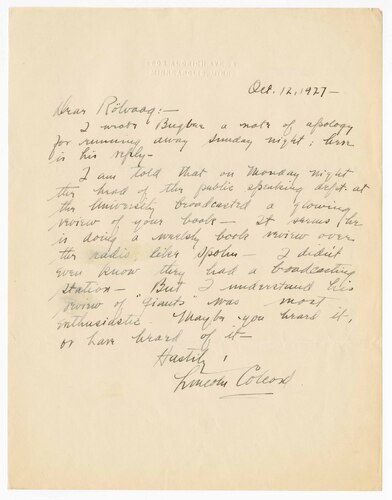 Oct. 12, 1927 —
Dear Rölvaag: —
I wrote Bugbee a note of apology
for running away Sunday night; here
is his reply —
I am told that on Monday night
the head of the public speaking dept. at
the University broadcasted a glowing
review of your book — It seems he
is doing a weekly book review over
the radio like Spohn — I didn't
even know they had a broadcasting
station — But I understand his
review of "Giants" was most
enthusiastic. Maybe you heard it,
or have heard of it —
Hastily,
Lincoln Colcord